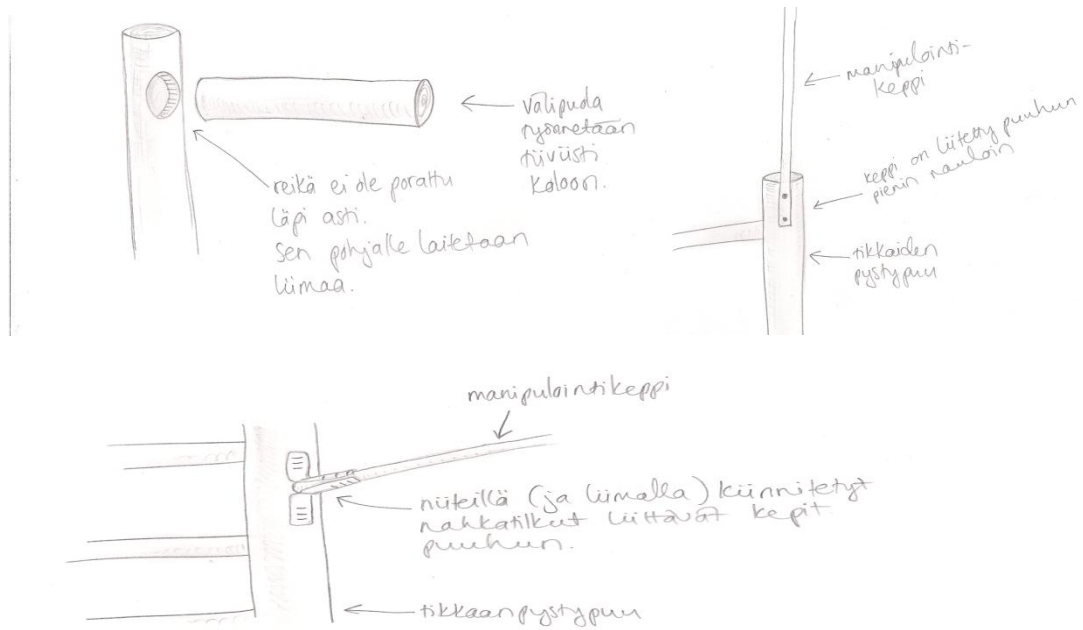 välipuola
työnnetään
tiiviisti
koloon.
reikä ei ole porattu
läpi asti.
Sen pohjalle laitetaan
liimaa.
manipulointi-
keppi
keppi on liitetty puuhun
pienin nauloin
tikkaiden
pystypuu
manipulointikeppi
niiteillä (ja liimalla) kiinnitetyt
nahkatilkut liittävät kepit
puuhun.
tikkaan pystypuu